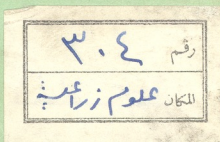 رقم ٣٠٤
المكان علوم زراعية